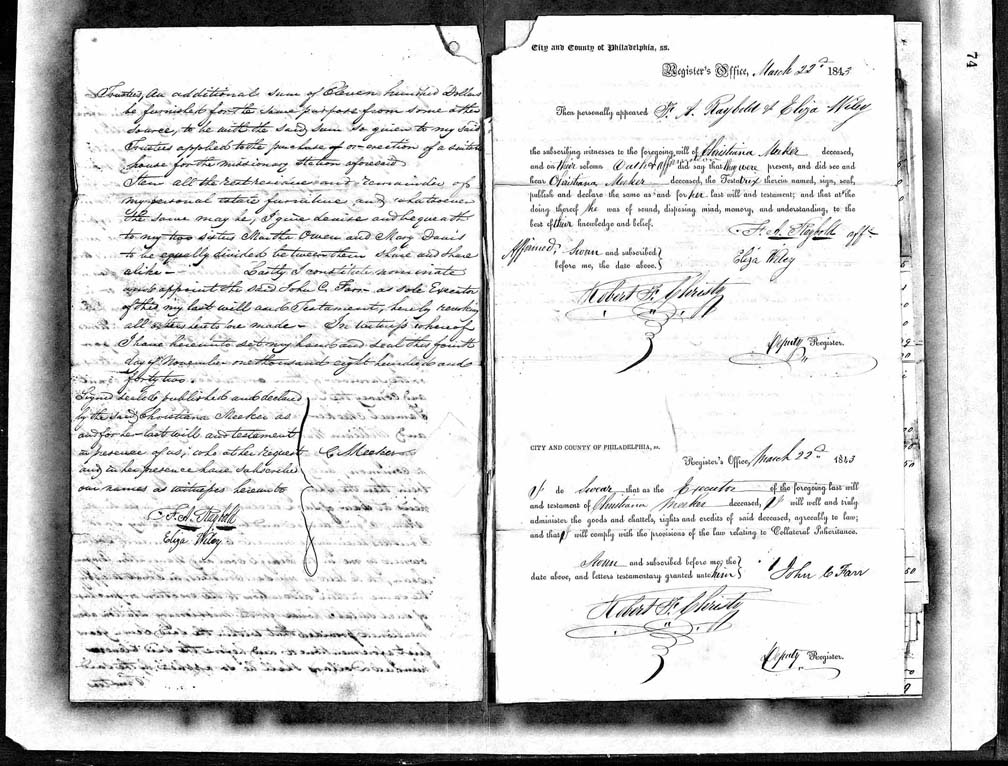 Trustees, An additional sum of Eleven hundred Dollars
be furnished for the same purpose from some other
source, to be with the said sum so given to my said
Trustees applied to the purchase of or erection of a suitable
house for the missionary Station aforesaid
Item all the rest residue and remainder of
my personal estate furniture and whatsoever
the same may be, I give demise and bequeath
to my two sisters Martha Owen and Mary Davis
to be equally divided between them Share and Share
alike — Lastly I constitute nominate
and appoint the said John C. Farr as sole Executor
of this my last will and Testament, hereby revoking
all others by me made — In witness whereof
I have hereunto set my hand and seal this fourth
day of November one thousand eight hundred and
forty two.
Signed sealed published and declared
by the said Christiana Meeker as
and for her last will and testament
in presence of us, who at her Request
and in her presence have subscribed
our names as witnesses hereunto
C Meeker
F. A. Raybold
Eliza Wiley
74
City and County of Philadelphia, ss.
Register's Office, March 22d 1843
Then personally appeared F. A. Raybold & Eliza Wiley
the subscribing witnesses to the foregoing will of Christiana Meeker deceased,
and on their solemn Oath & Affirmation did say that they were present, and did see and
hear Christiana Meeker deceased, the Testatrix therein named, sign, seal,
publish and declare the same as and for her last will and testament; and that at the
doing thereof she was of sound, disposing mind, memory, and understanding, to the
best of their knowledge and belief.
F. A. Raybold aff
Affirmed & Sworn and subscribed
before me, the date above,
Eliza Wiley
Robert F. Christy
Deputy Register.
CITY AND COUNTY OF PHILADELPHIA, ss.
Register's Office, March 22d 1843
I do Swear that as the Executor of the foregoing last will
and testament of Christiana Meeker deceased, I will well and truly
administer the goods and chattels, rights and credits of said deceased, agreeably to law;
and that I will comply with the provisions of the law relating to Collateral Inheritance.
Sworn and subscribed before me, the
date above, and letters testamentary granted unto him
John C Farr
Robert F. Christy
Deputy Register.